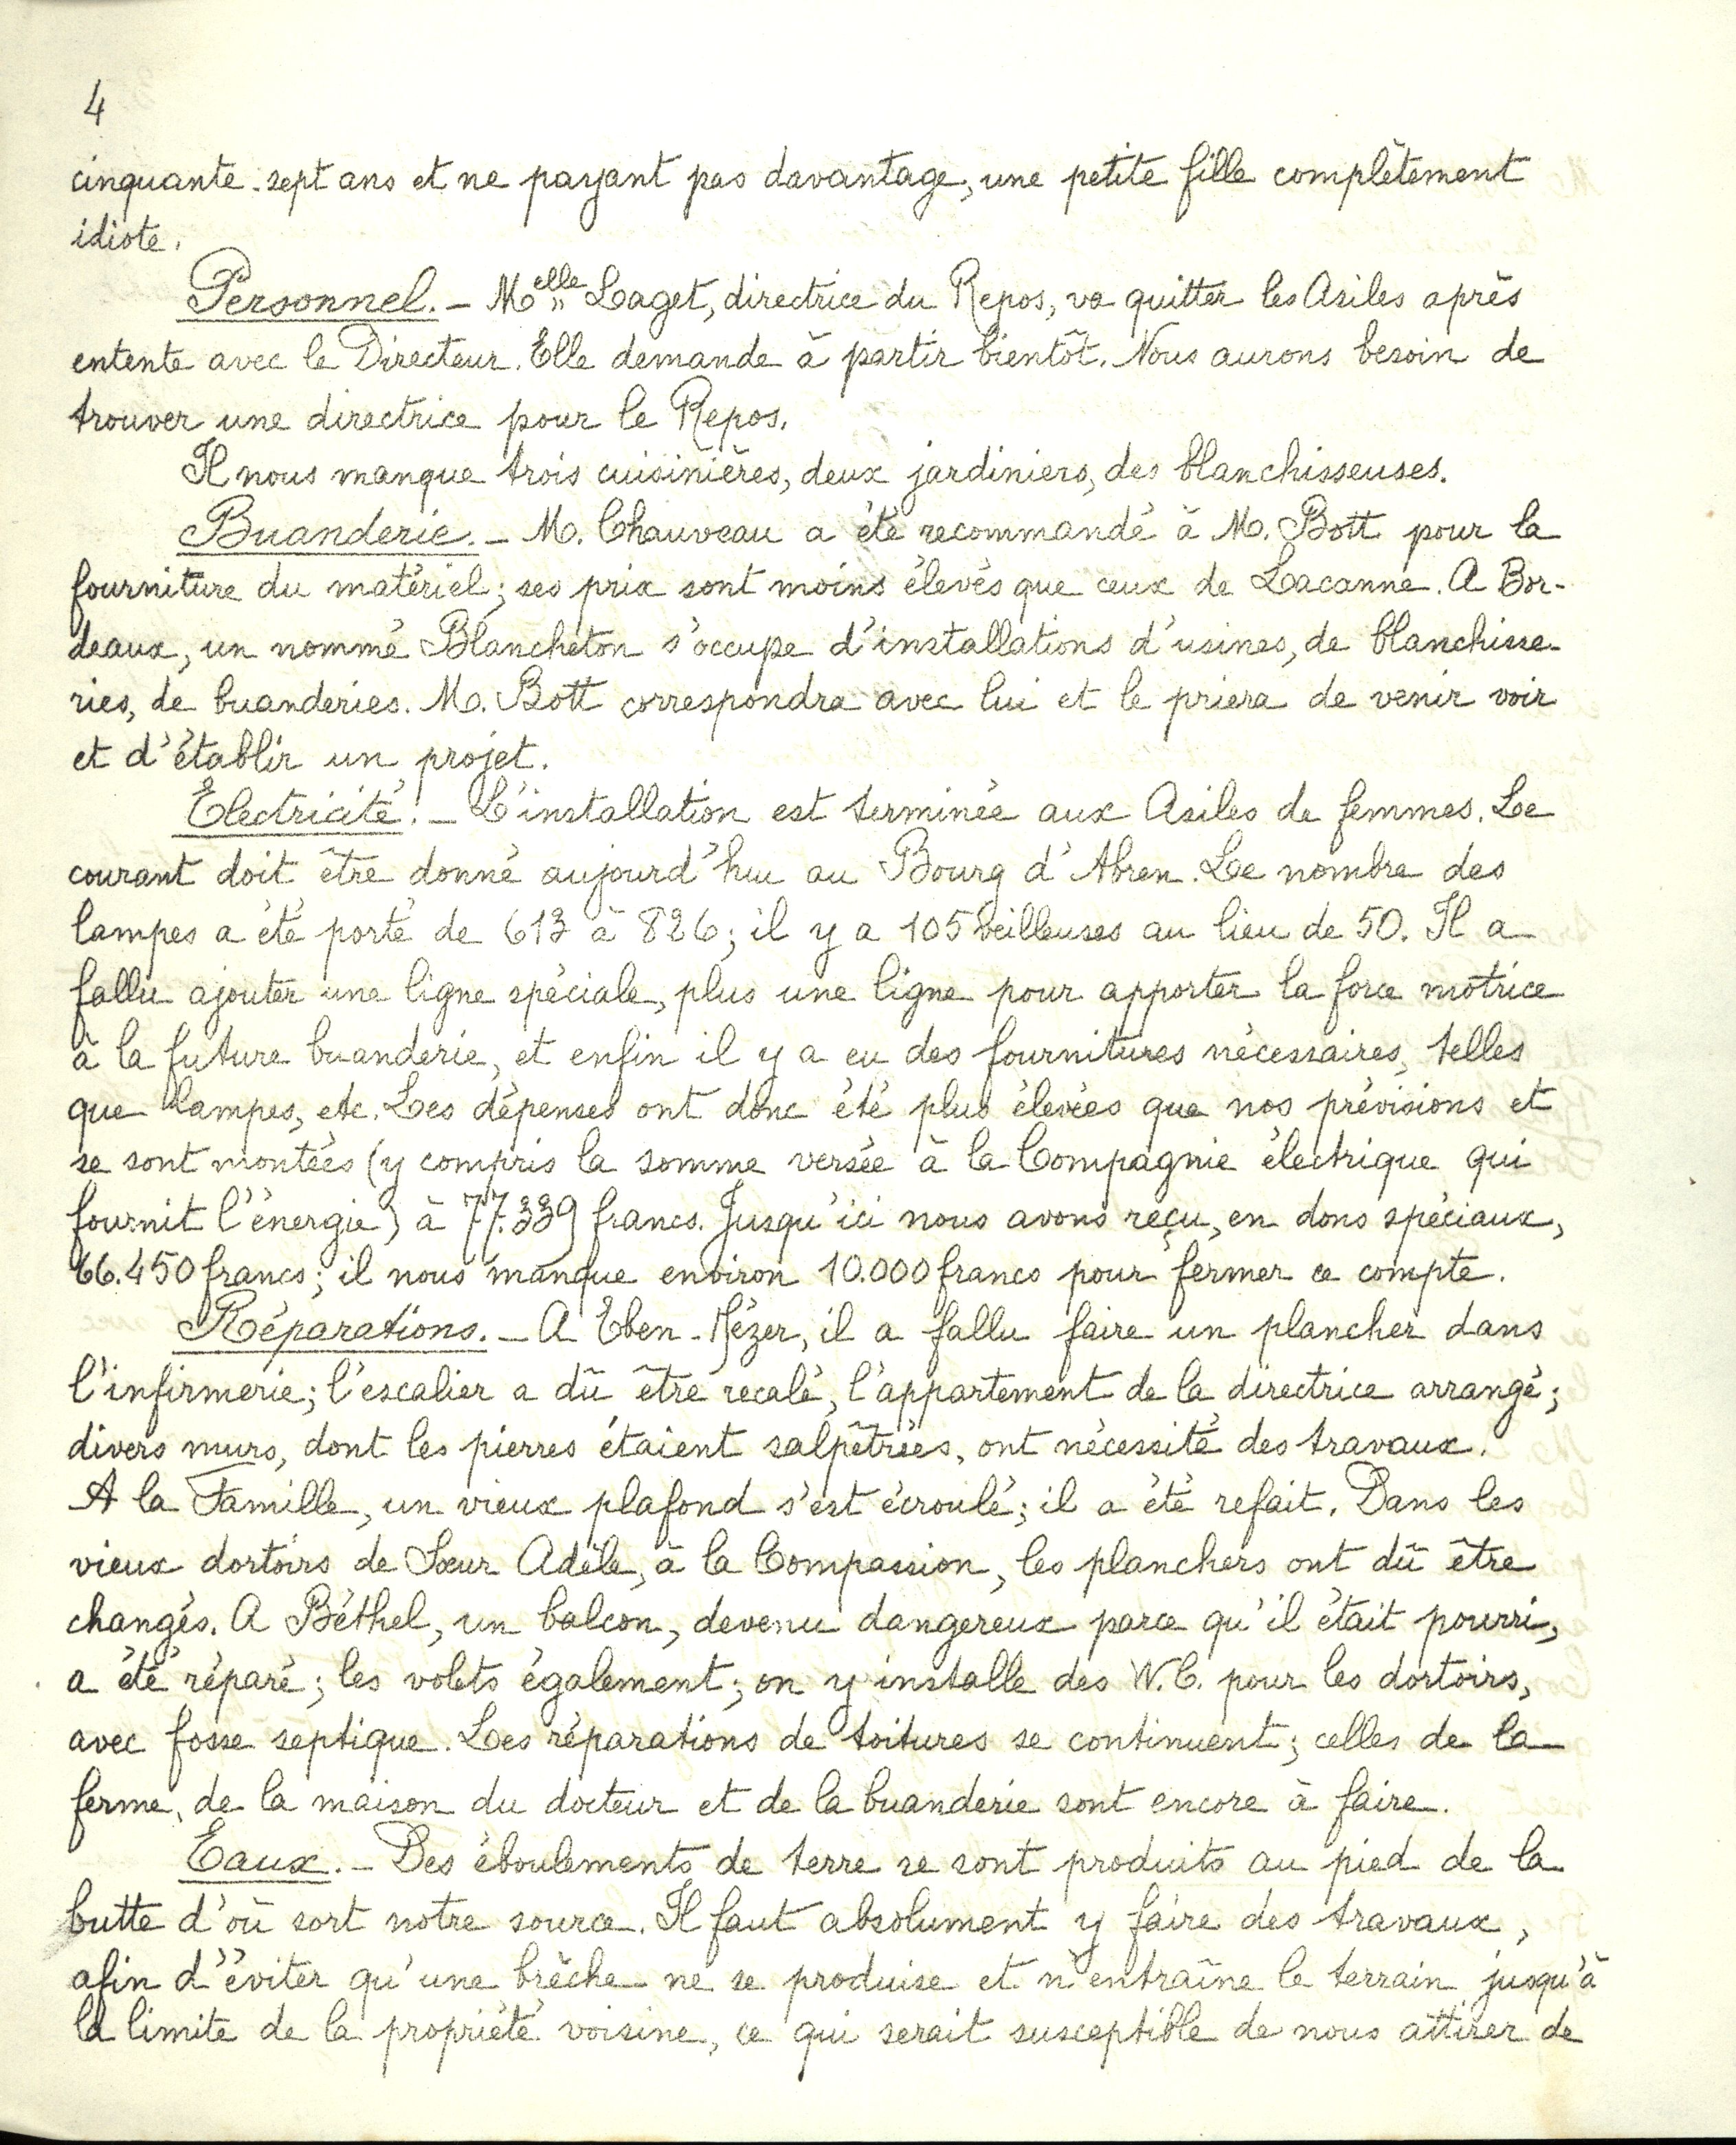 4
cinquante-sept ans et ne payant pas davantage; une petite fille complètement
idiote.
Personnel. – Melle Laget, directrice du Repos, va quitter les Asiles après
entente avec le Directeur. Elle demande à partir bientôt. Nous aurons besoin de
trouver une directrice pour le Repos.
Il nous manque trois cuisinières, deux jardiniers, des blanchisseuses.
Buanderie. – M. Chauveau a été recommandé à M. Bott pour la
fourniture du matériel; ses prix sont moins élevés que ceux de Lacanne. A Bor-
deaux, un nommé Blancheton s'occupe d'installations d'usines, de blanchisse-
ries, de buanderies. M. Bott correspondra avec lui et le priera de venir voir
et d'établir un projet.
Electricité. – L'installation est terminée aux Asiles de femmes. Le
courant doit être donné aujourd'hui au Bourg d'Abren. Le nombre des
lampes a été porté de 613 à 826; il y a 105 veilleuses au lieu de 50. Il a
fallu ajouter une ligne spéciale, plus une ligne pour apporter la force motrice
à la future buanderie, et enfin il y a eu des fournitures nécessaires, telles
que lampes, etc. Les dépenses ont donc été plus élevées que nos prévisions et
se sont montées (y compris la somme versée à la Compagnie électrique qui
fournit l'énergie) à 77.339 francs. Jusqu'ici nous avons reçu, en dons spéciaux,
66.450 francs; il nous manque environ 10.000 francs pour fermer ce compte.
Réparations. – A Eben-Hézer, il a fallu faire un plancher dans
l'infirmerie; l'escalier a dû être recalé, l'appartement de la directrice arrangé;
divers murs, dont les pierres étaient salpêtrées, ont nécessité des travaux.
A la Famille, un vieux plafond s'est écroulé; il a été refait. Dans les
vieux dortoirs de Sœur Adèle, à la Compassion, les planchers ont dû être
changés. A Béthel, un balcon, devenu dangereux parce qu'il était pourri,
a été réparé; les volets également; on y installe des W.C. pour les dortoirs,
avec fosse septique. Les réparations de toitures se continuent; celles de la
ferme, de la maison du docteur et de la buanderie sont encore à faire.
Eaux. – Des éboulements de terre se sont produits au pied de la
butte d'où sort notre source. Il faut absolument y faire des travaux,
afin d'éviter qu'une brèche ne se produise et n'entraîne le terrain jusqu'à
la limite de la propriété voisine, ce qui serait susceptible de nous attirer de